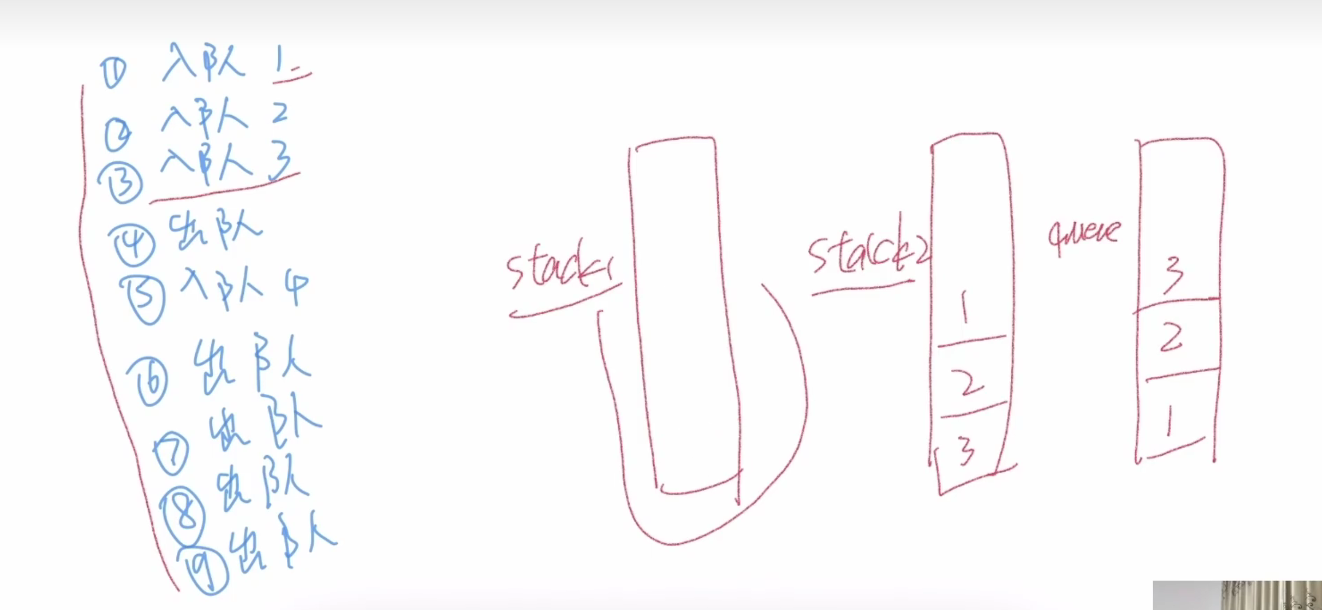 ① 入队 1
② 入队 2
③ 入队 3
④ 出队
⑤ 入队 4
⑥ 出队
⑦ 出队
⑧ 出队
⑨ 出队
stack1
stack2
1
2
3
queue
3
2
1